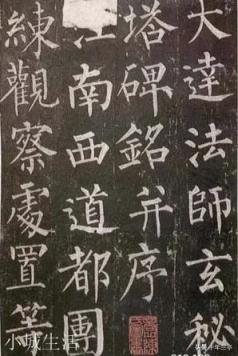 大達法師玄秘
塔碑銘并序
江南西道都團
練觀察處置等
小城生活